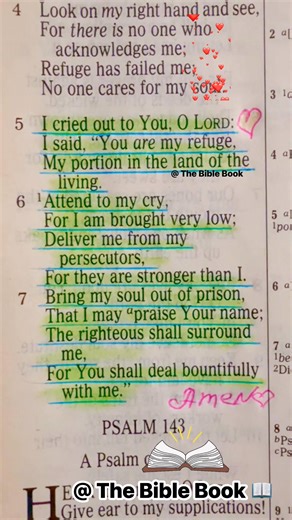 4 Look on my right hand and see,
For there is no one who
acknowledges me;
Refuge has failed me;
No one cares for my soul.
5 I cried out to You, O LORD:
I said, “You are my refuge,
My portion in the land of the
living.
@ The Bible Book
6 1Attend to my cry,
For I am brought very low;
Deliver me from my
persecutors,
For they are stronger than I.
7 Bring my soul out of prison,
That I may apraise Your name;
The righteous shall surround
me,
For You shall deal bountifully
with me.”
Amen
PSALM 143
A Psalm
@ The Bible Book
Give ear to my supplications!